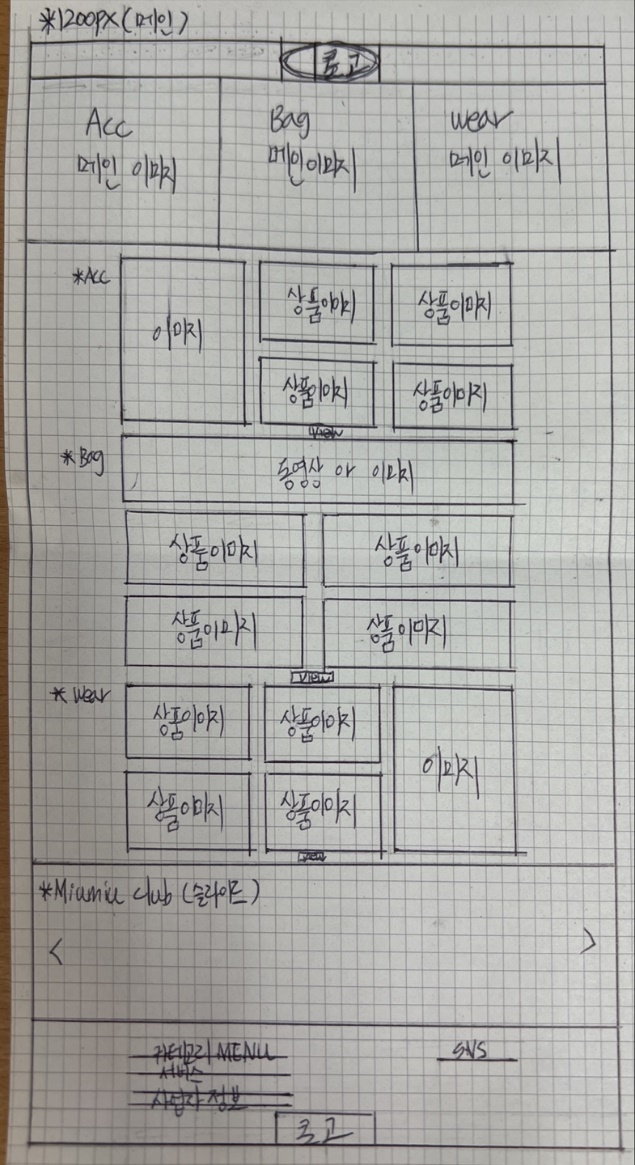 *1200px(메인)
로고
Acc
메인 이미지
Bag
메인이미지
wear
메인 이미지
*Acc
이미지
상품이미지
상품이미지
상품이미지
상품이미지
view
*Bag
동영상 or 이미지
상품이미지
상품이미지
상품이미지
상품이미지
view
*Wear
상품이미지
상품이미지
이미지
상품이미지
상품이미지
view
*Miumiu club (슬라이드)
< >
카테고리 MENU
SNS
서비스
사업자 정보
로고